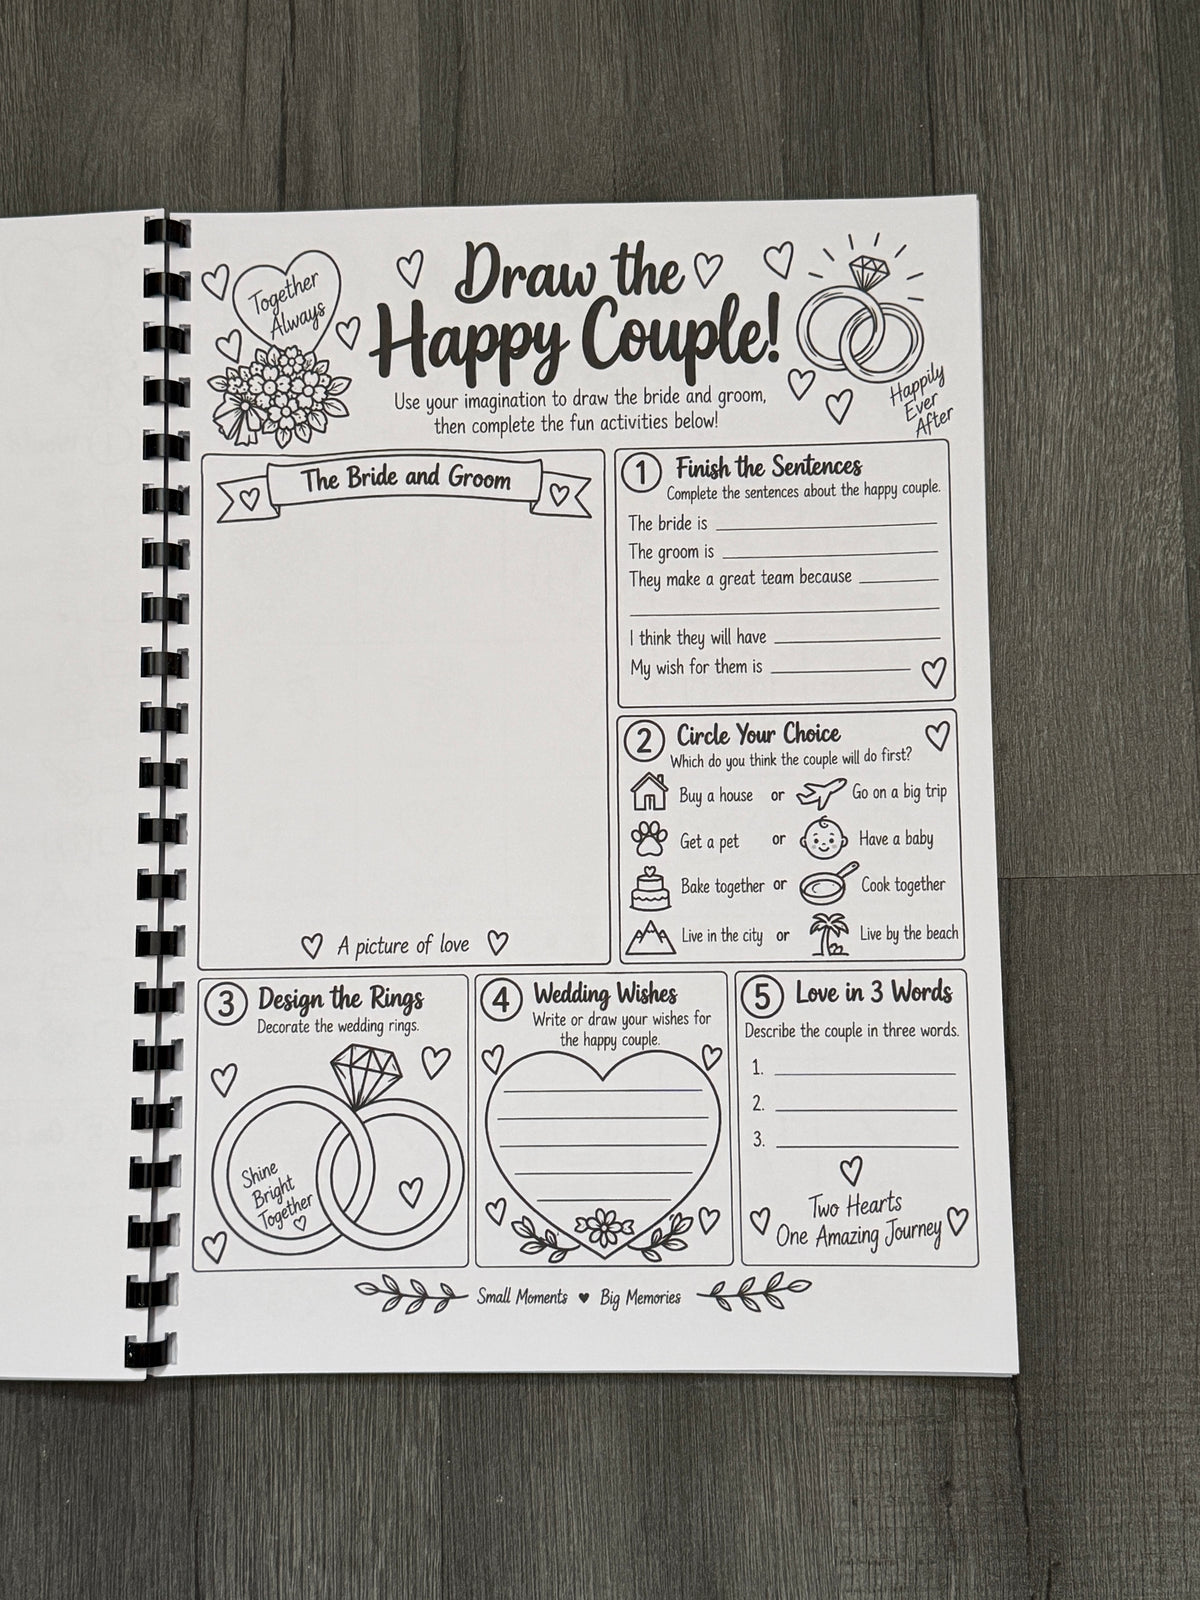 Together
Always
Draw the
Happy Couple!
Happily
Ever
After
Use your imagination to draw the bride and groom,
then complete the fun activities below!
The Bride and Groom
A picture of love
1 Finish the Sentences
Complete the sentences about the happy couple.
The bride is
The groom is
They make a great team because
I think they will have
My wish for them is
2 Circle Your Choice
Which do you think the couple will do first?
Buy a house or Go on a big trip
Get a pet or Have a baby
Bake together or Cook together
Live in the city or Live by the beach
3 Design the Rings
Decorate the wedding rings.
Shine
Bright
Together
4 Wedding Wishes
Write or draw your wishes for
the happy couple.
5 Love in 3 Words
Describe the couple in three words.
1.
2.
3.
Two Hearts
One Amazing Journey
Small Moments ♥ Big Memories